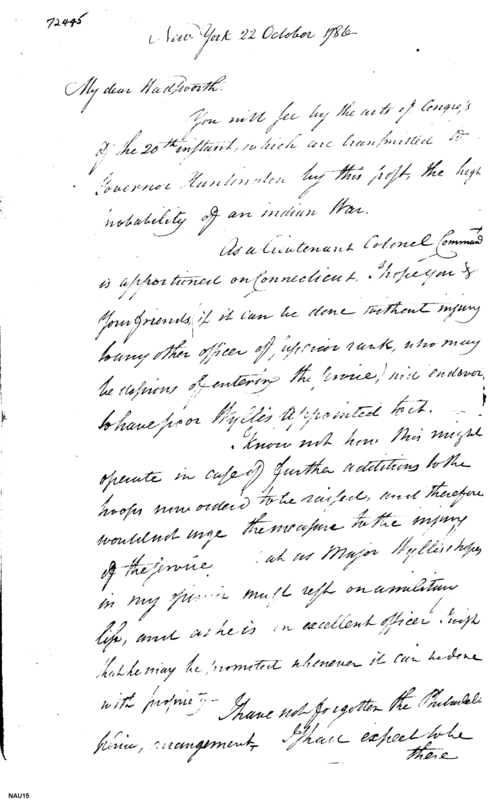 72445
New York 22 October 1786
My dear Wadsworth.
You will see by the acts of Congress
of the 20th instant, which are transmitted to
Governor Huntington by this post, the high
probability of an indian War.
As a Lieutenant Colonel Commdt
is apportioned on Connecticut. I hope you &
your friends (if it can be done without injury
to any other officer of superior rank, who may
be desirous of entering the service,) will endeavor,
to have poor Wyllis appointed to it.
I know not how this might
operate in case of further additions to the
troops now ordered to be raised, and therefore
would not urge the measure to the injury
of the service. But as Major Wyllis's hopes
in my opinion must rest on a military
life, and as he is an excellent officer I wish
that he may be promoted whenever it can be done
with propriety-
I have not forgotten the
arrangement, I shall expect to be
there
NAU15